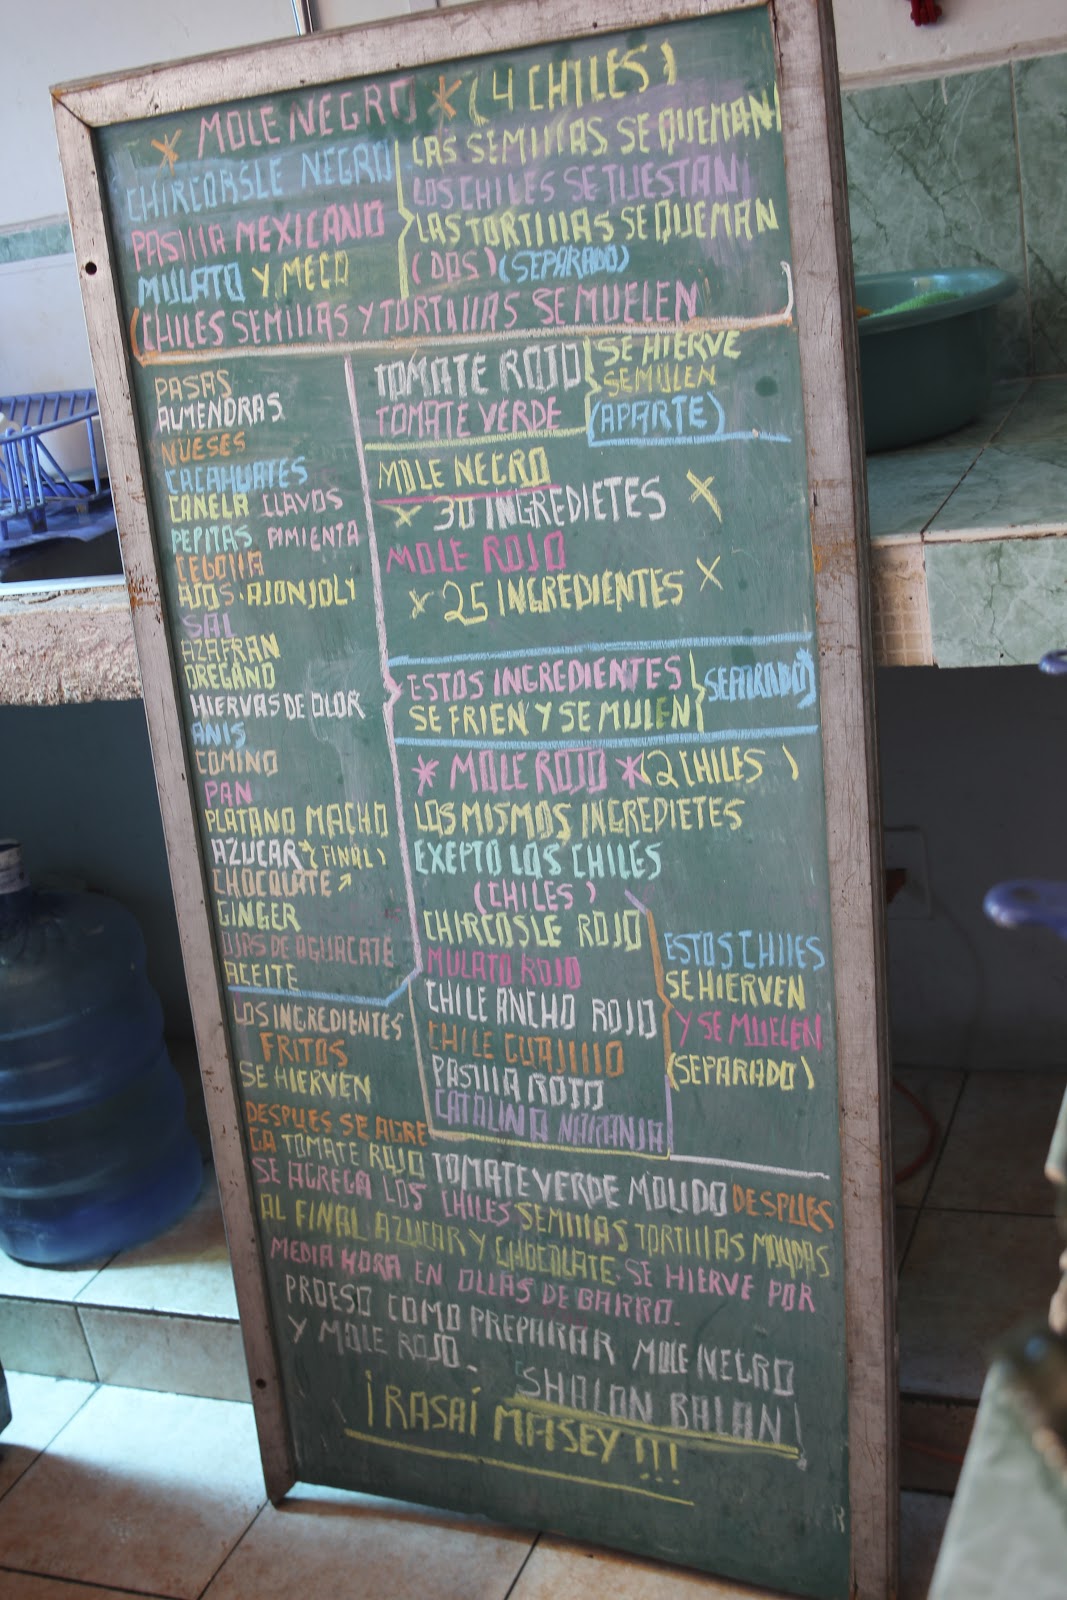 * MOLE NEGRO * (4 CHILES)
CHIRCORSLE NEGRO
PASILLA MEXICANO
MULATO Y MECO
LAS SEMILLAS SE QUEMAN
LOS CHILES SE TUESTAN
LAS TORTILLAS SE QUEMAN
(DOS) (SEPARADO)
CHILES SEMILLAS Y TORTILLAS SE MUELEN
PASAS
ALMENDRAS
NUESES
CACAHUATES
CANELA CLAVOS
PEPITAS PIMIENTA
CEBOLLA
AJOS · AJONJOLY
SAL
AZAFRAN
OREGANO
HIERVAS DE OLOR
ANIS
COMINO
PAN
PLATANO MACHO
AZUCAR (FINAL)
CHOCOLATE
GINGER
OJAS DE AGUACATE
ACEITE
TOMATE ROJO
TOMATE VERDE
SE HIERVE
SEMULEN
(APARTE)
MOLE NEGRO
× 30 INGREDIETES ×
MOLE ROJO
× 25 INGREDIENTES ×
ESTOS INGREDIENTES
SE FRIEN Y SE MULEN
SEPARADO
* MOLE ROJO * (2 CHILES)
LOS MISMOS INGREDIETES
EXEPTO LOS CHILES
(CHILES)
CHIRCOSLE ROJO
MULATO ROJO
CHILE ANCHO ROJO
CHILE GUAJILLO
PASILLA ROTO
CATALINA NARANJA
ESTOS CHILES
SE HIERVEN
Y SE MUELEN
(SEPARADO)
LOS INGREDIENTES
FRITOS
SE HIERVEN
DESPUES SE AGRE
GA TOMATE ROJO TOMATE VERDE MOLIDO DESPUES
SE AGREGA LOS CHILES SEMILLAS TORTILLAS MOLIDAS
AL FINAL AZUCAR Y CHOCOLATE. SE HIERVE POR
MEDIA HORA EN OLLAS DE BARRO.
PROESO COMO PREPARAR MOLE NEGRO
Y MOLE ROJO.
SHALON BALAN
¡RASAÍ MAISEY!!!